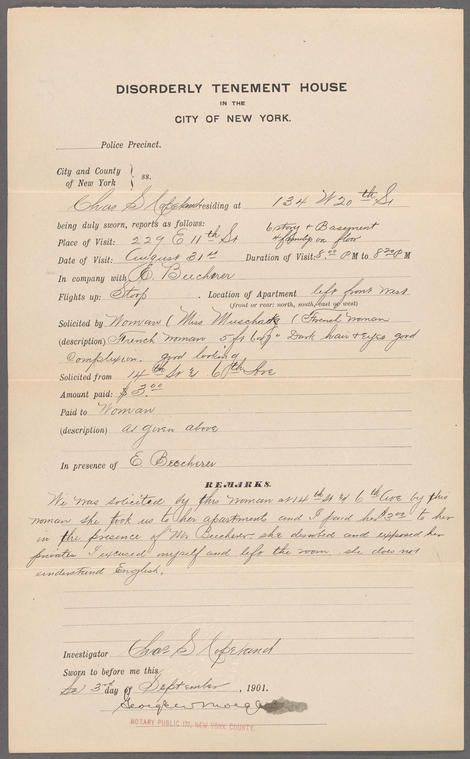 DISORDERLY TENEMENT HOUSE
IN THE
CITY OF NEW YORK.
Police Precinct.
City and County
of New York } ss.
Chas S Kopeland residing at 134 W 20th St
being duly sworn, reports as follows: 6 story & Basement
Place of Visit: 229 E 11th St 4 family on floor
Date of Visit: August 31st Duration of Visit: 8:00 P M to 8:20 P M
In company with E. Beecherer
Flights up: Stoop. Location of Apartment left front west
(front or rear: north, south, east or west)
Solicited by Woman (Miss (French woman
(description) French woman 5 ft Dark hair & eyes good
Complexion. good looking
Solicited from 14th St & 6th Ave
Amount paid: $3.00
Paid to Woman
(description) as given above
In presence of E Beecherer
REMARKS.
We was solicited by this woman at 14th St & 6th Ave by this
woman she took us to her apartments and I paid her $3.00 to her
in the presence of Mr. Beecherer she disrobed and exposed her
privates I excused myself and left the room she does not
understand English.
Investigator Chas S Kopeland
Sworn to before me this
3rd day of September, 1901.
NOTARY PUBLIC 177, NEW YORK COUNTY.